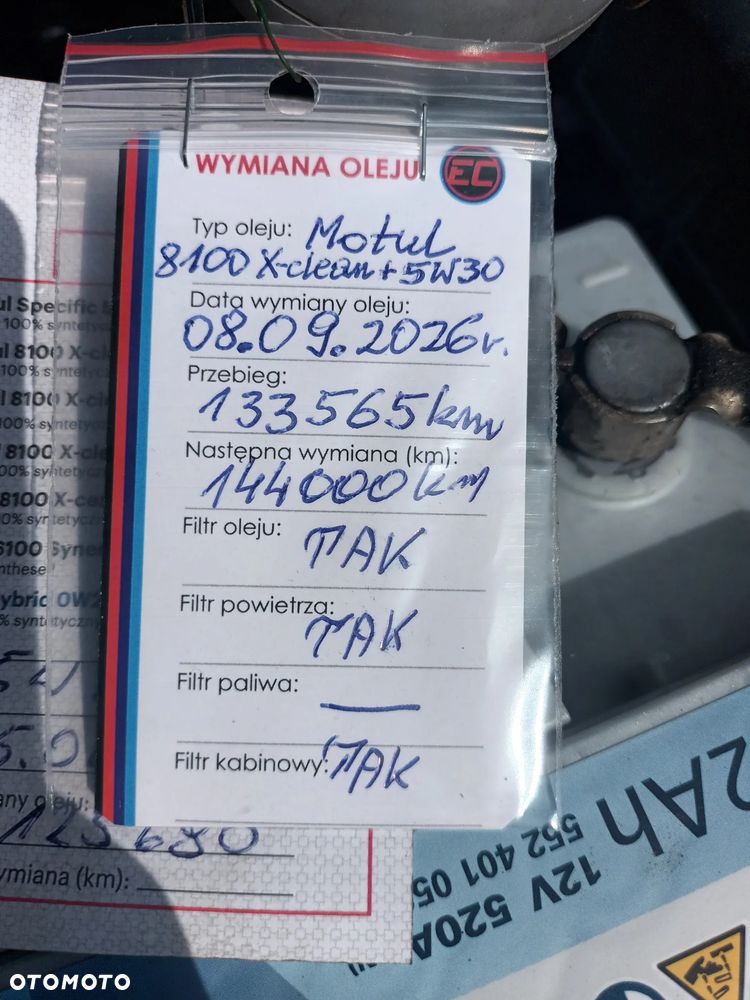 WYMIANA OLEJU EC
Typ oleju: Motul
8100 X-clean + 5W30
Data wymiany oleju:
08.09.2026r.
Przebieg:
133565km
Następna wymiana (km):
144000km
Filtr oleju: TAK
Filtr powietrza: TAK
Filtr paliwa: —
Filtr kabinowy: TAK
ul Specific
100% syntet
ul 8100 X-cl
100% syntet
l 8100 X-cl
l 8100 X-cl
8100 X-ce
8100 Syne
ybrid 0W2
123690
ymiana (km):
2Ah
552 401 05
12V 520A
OTOMOTO